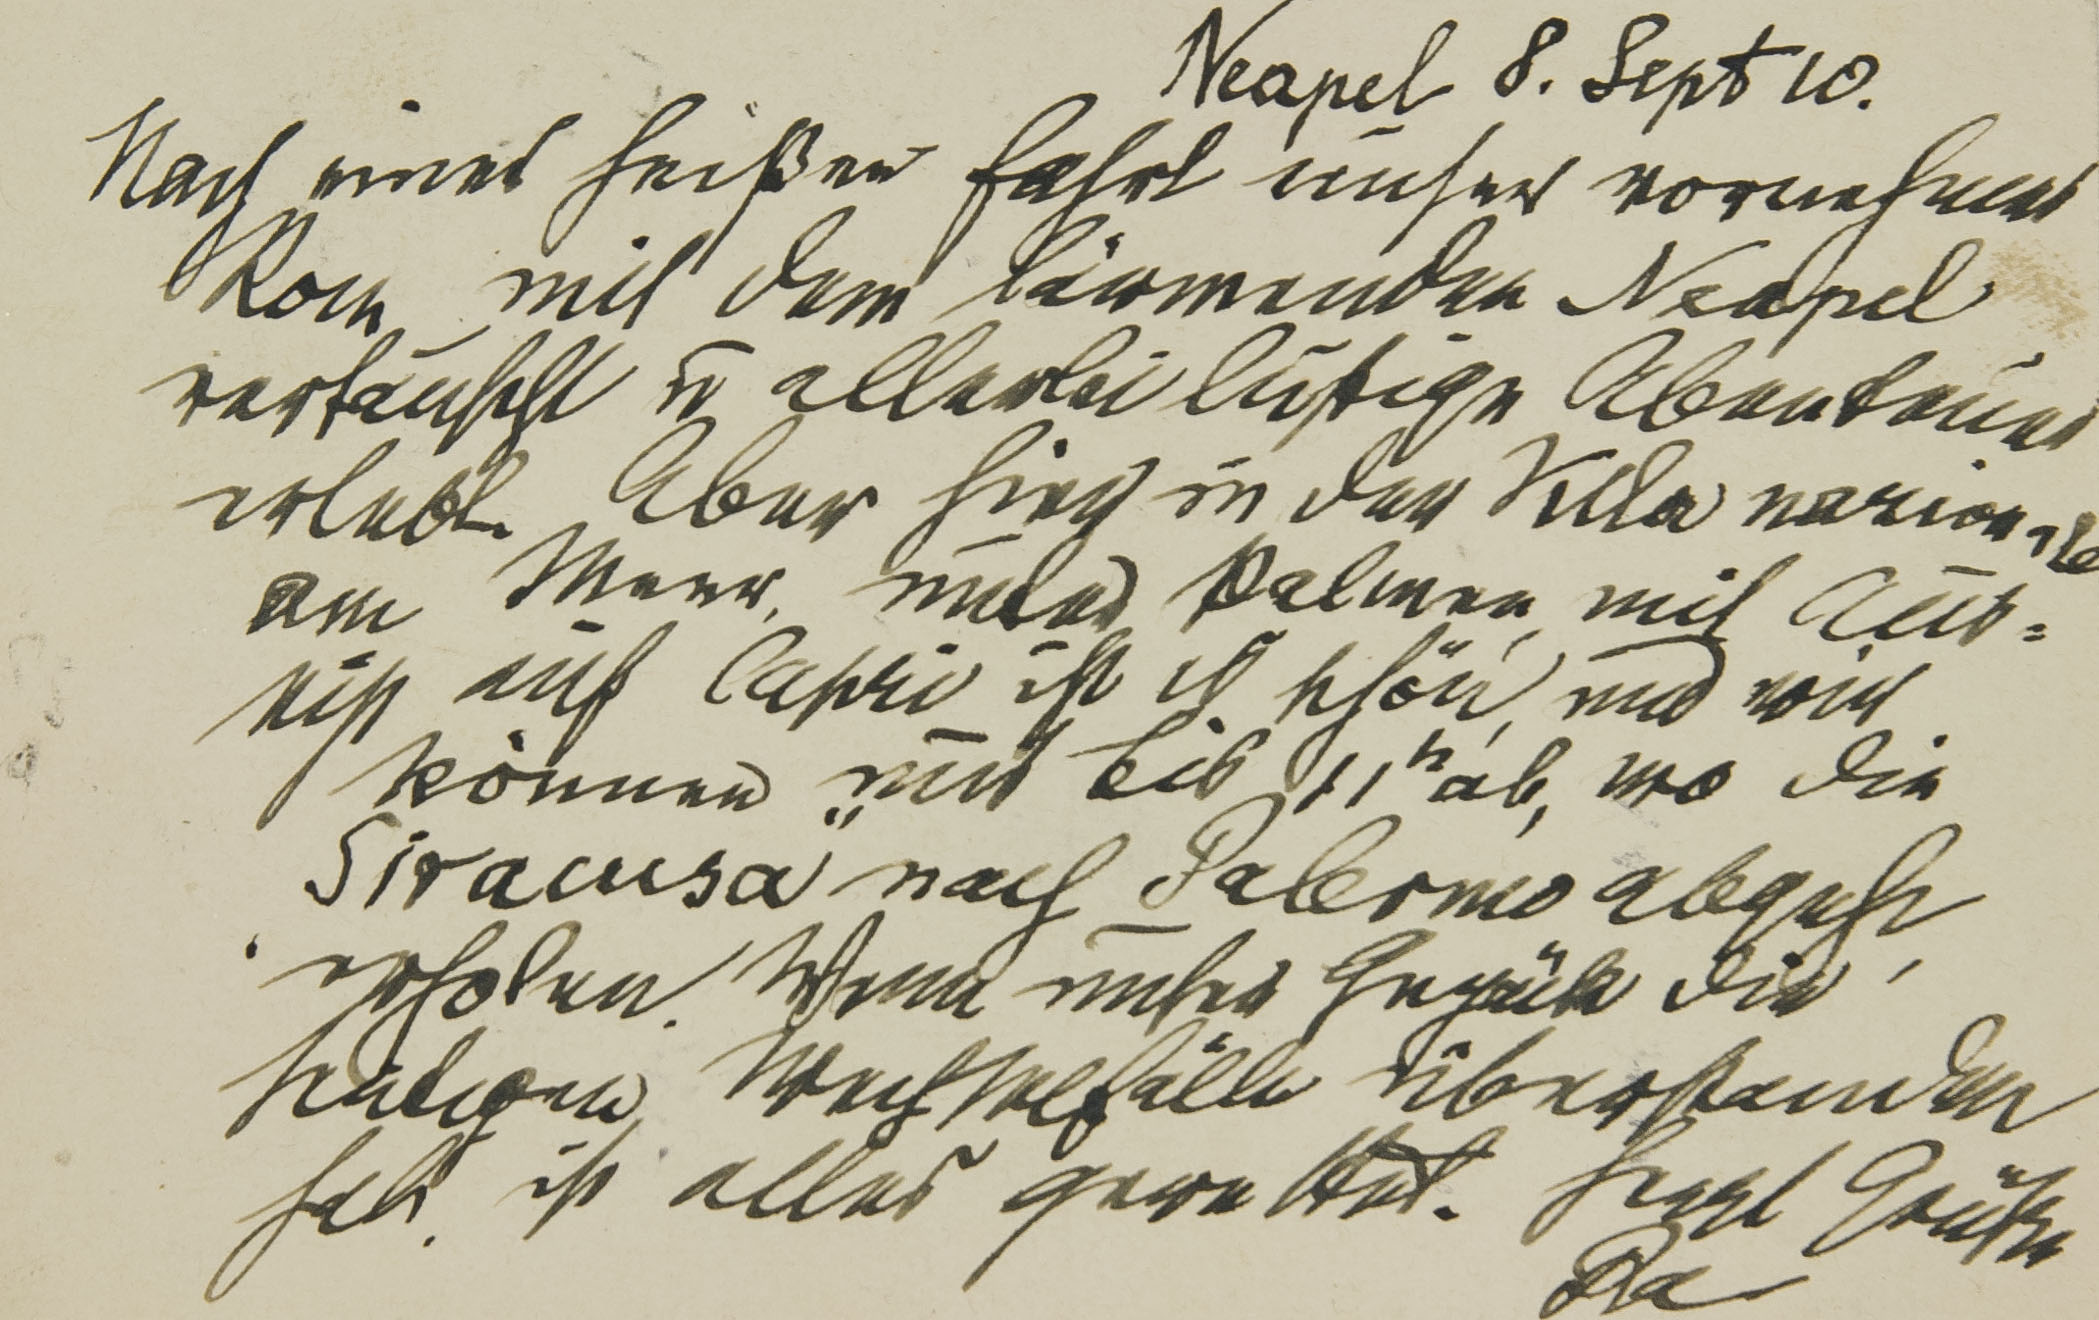 Neapel 8. Sept 10.
Nach einer heißen Fahrt unser vornehmes
Rom mit dem lärmenden Neapel
vertauscht u allerlei lustige Abenteuer
erlebt. Aber hier in der Villa nazionale
am Meer, unter Palmen, mit Aus=
sicht auf Capri ist es schön, und wir
können uns bis 11h ab, wo die
„Siracusa" nach Palermo abgeht,
erholen. Wenn unser Gepäck die
heutigen Wechselfälle überstanden
hat, ist alles gerettet. Herzl Grüße
Ra